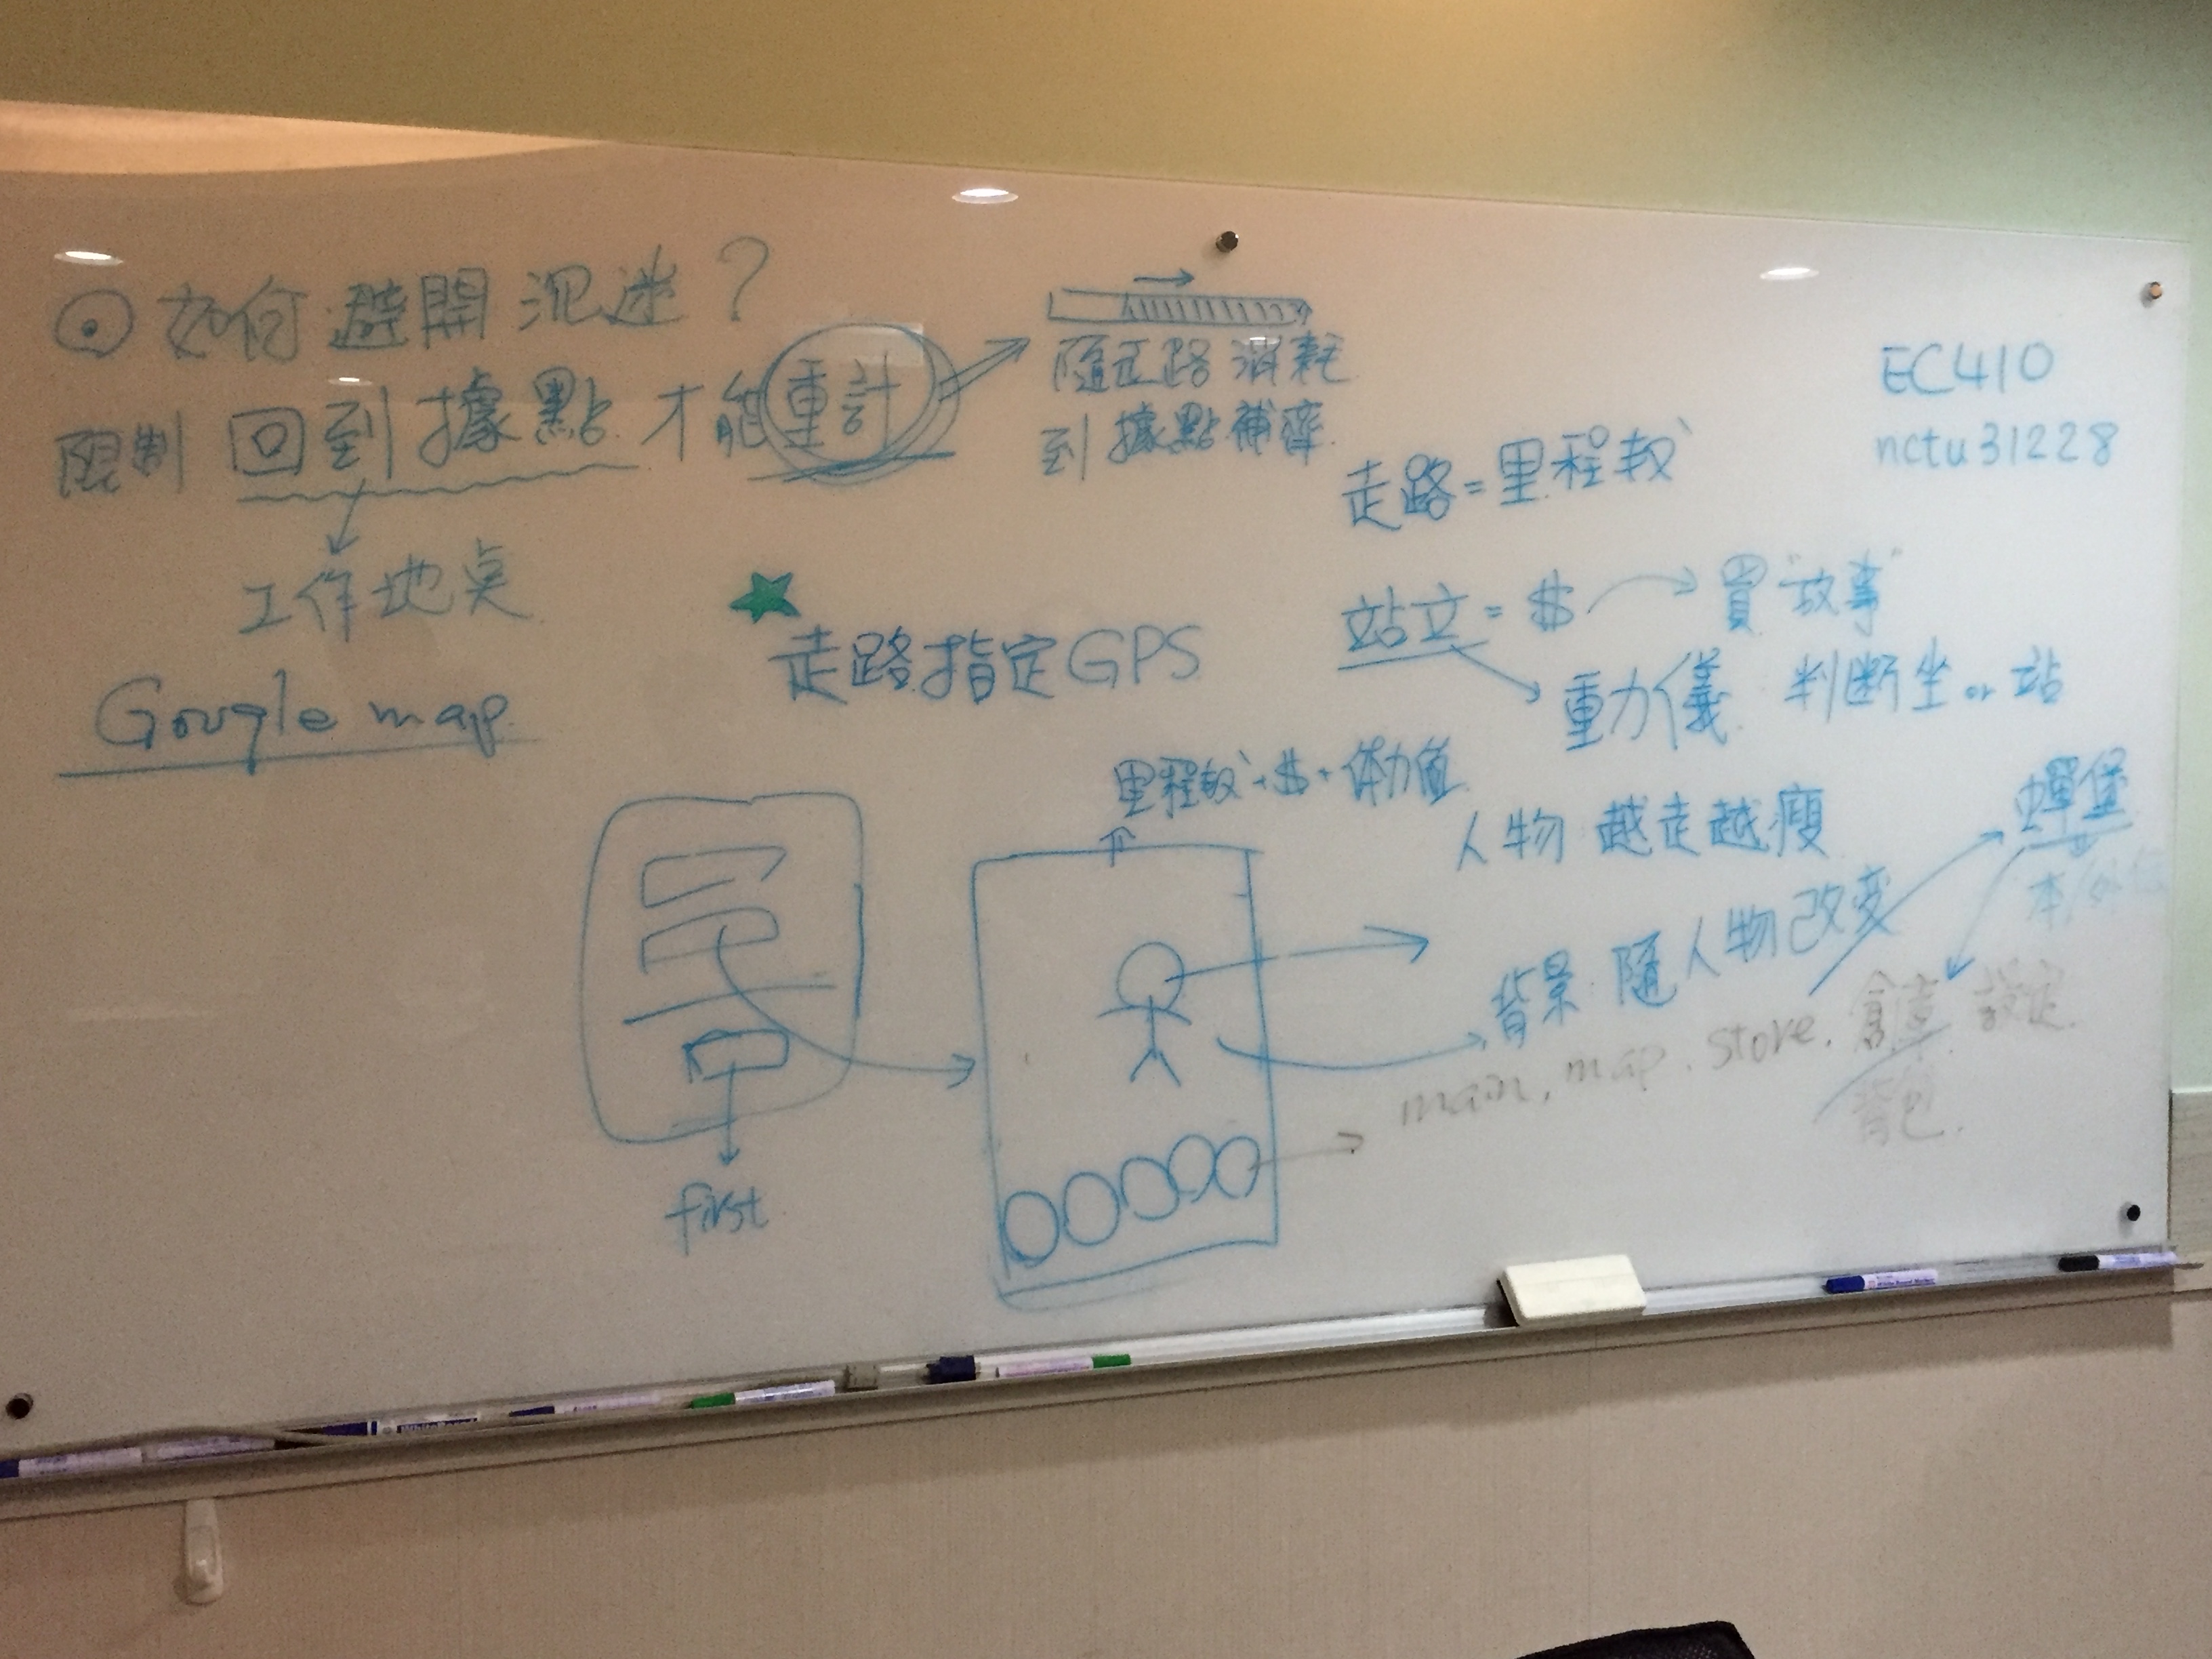 如何避開沉迷？
限制 回到據點 才能重計
隨走路消耗
到據點補齊
工作地點
Google map
走路指定GPS
EC410
nctu31228
走路=里程數
站立=$ 買"故事"
重力儀 判斷坐or站
里程數+$+体力值
人物 越走越瘦
背景 隨人物改變
蟬堡
main, map, store, 創造 設定.
背包.
first